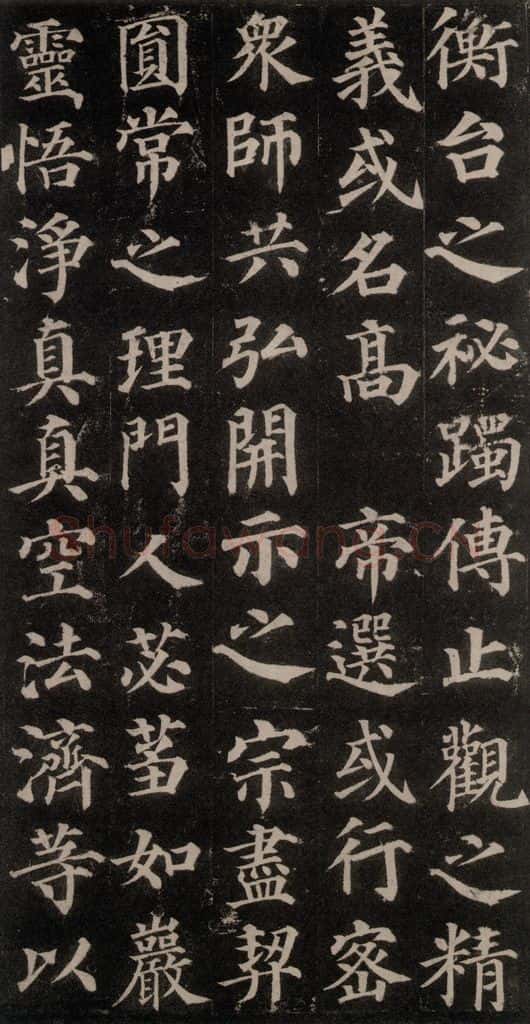 衡台之祕躅傳止觀之精
義或名高 帝選或行密
衆師共弘開示之宗盡契
圎常之理門人苾蒭如巖
靈悟淨真真空法濟等以
shufawang.cn